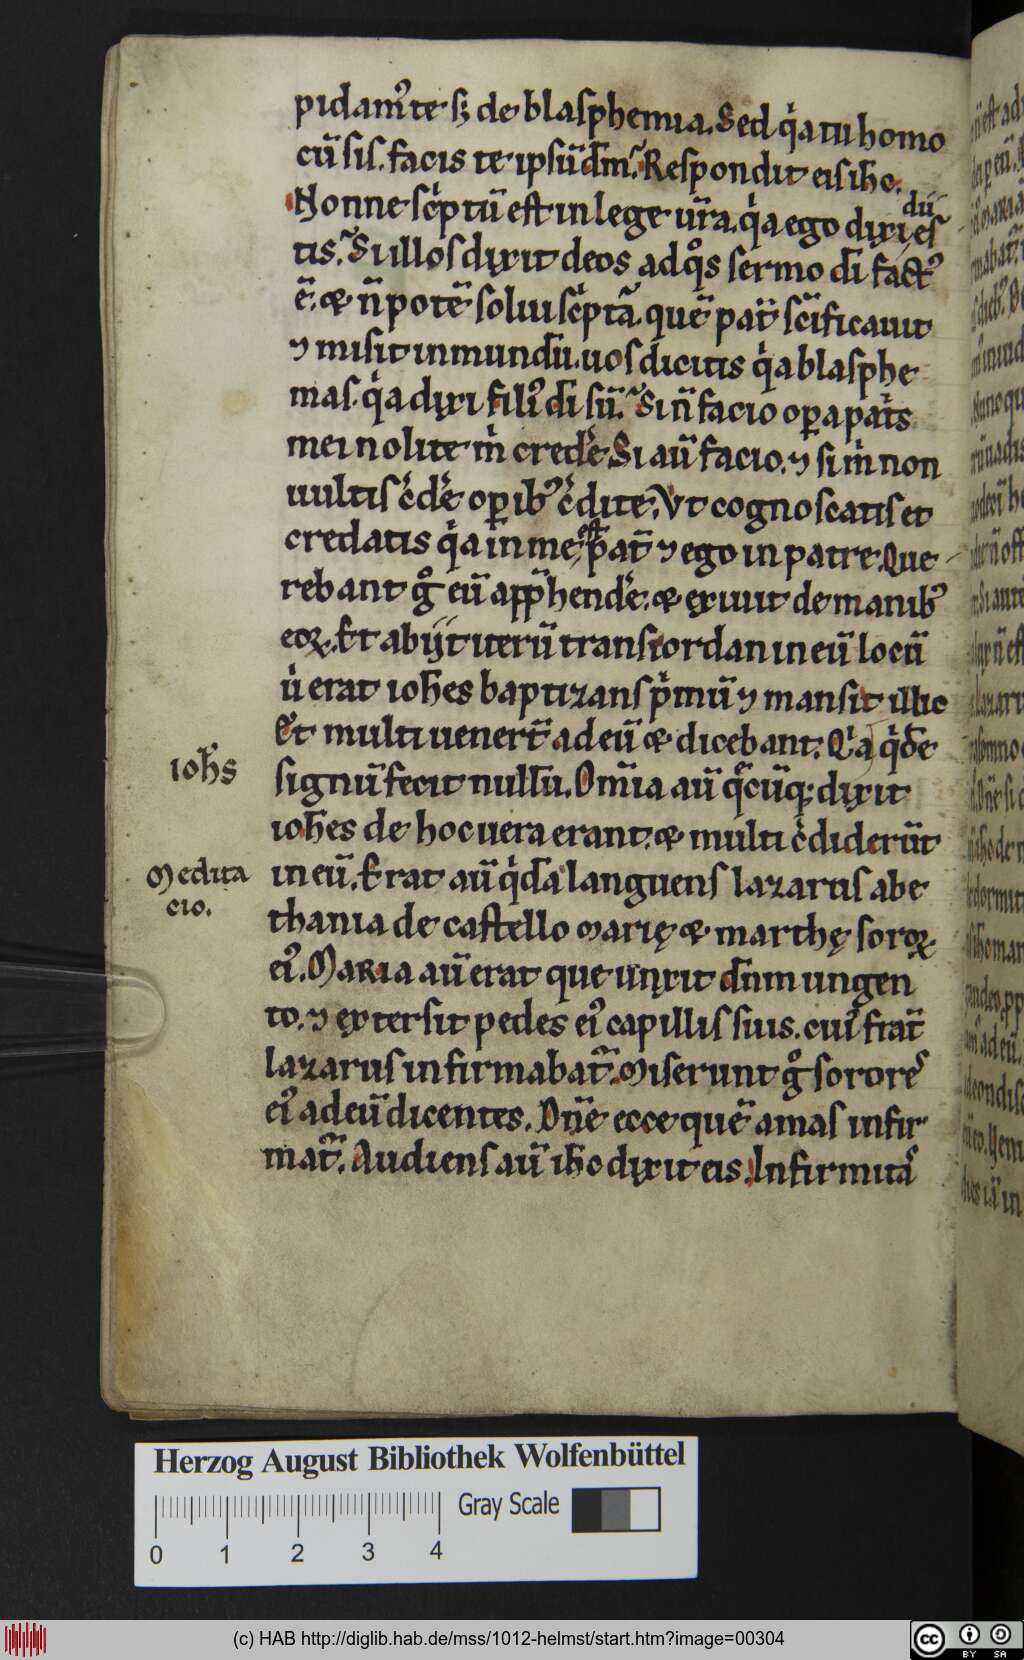 pidam᷒ te sꝫ de blasphemia. Sed qͥa tu homo
cū sis. facis te ipsū dm̄. Respondit eis ihc.
Nonne scͥptū est in lege ur̄a. qͥa ego dixi dii es
tis. Si illos dixit deos ad qͦs sermo dī fact᷒
ē. & n̄ potē solui scͥptā. quē pat̄ scīficauit
⁊ misit in mundū. uos dicitis qͥa blasphe
mas. qͥa dixi fili᷒ dī sū. Si n̄ facio oꝑa pat̄s
mei nolite m̄ credͤe. Si aū facio. ⁊ si m̄ non
uultis cͤdͤe oꝑib᷒ cͤdite. Vt cognoscatis et
credatis qͥa in me est pat̄ ⁊ ego in patre. Que
rebant gͦ eū app̄hendͤe. & exiuit de manib᷒
eoꝝ. Et abijt iterū trans iordan in eū locū
uͥ erat ioh̄es baptizans pͥmū ⁊ mansit illic
Et multi uenert̄ ad eū & dicebant. Qͥa qͥdē
signū fecit nullū. Om̄ia aū qͣcūqꝫ dixit
ioh̄s
ioh̄es de hoc uera erant. & multi cͤdiderūt
in eū. Erat aū qͥdā languens lazarus abe
Medita
cio.
thania de castello marię & marthę soroꝝ
ei᷒. Maria aū erat que unxit dn̄m ungen
to. ⁊ extersit pedes ei᷒ capillis suis. cui᷒ frat̄
lazarus infirmabat᷑. Miserunt gͦ sorores
ei᷒ ad eū dicentes. Dn̄e ecce quē amas infir
mat᷑. Audiens aū ihc dixit eis. Infirmitas
Herzog August Bibliothek Wolfenbüttel
Gray Scale
0 1 2 3 4
(c) HAB http://diglib.hab.de/mss/1012-helmst/start.htm?image=00304
cc BY SA